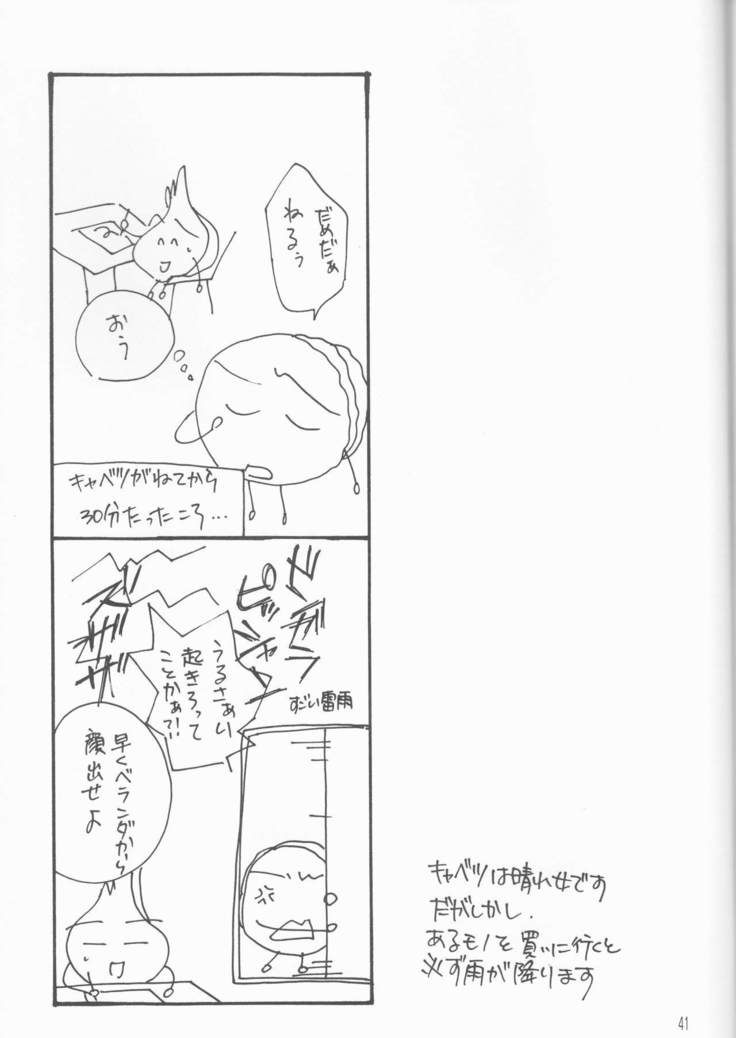 だめだぁ
ねるぅ
おう
キャベツがねてから
30分たったころ…
ガラ
ピシャ
ズザザザ
すごい雷雨
うるさぁい
起きろって
ことかぁ?!
早くベランダから
顔出せよ
キャベツは晴れ女です
だがしかし.
あるモノを買いに行くと
必ず雨が降ります
41